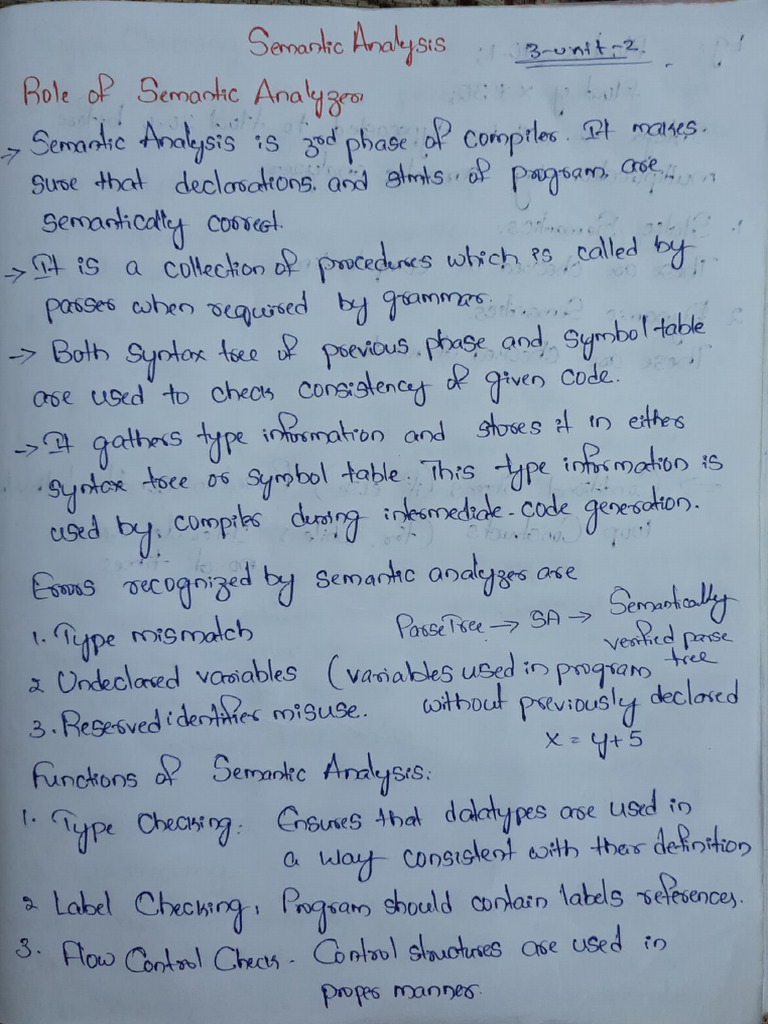 Semantic Analysis
3-unit-2.
Role of Semantic Analyzer
→ Semantic Analysis is 3rd phase of compiler. It makes
sure that declarations. and stmts of program are
semantically correct.
→ It is a collection of procedures which is called by
parser when required by grammar.
→ Both syntax tree of previous phase and symbol table
are used to check consistency of given code.
→ It gathers type information and stores it in either
syntax tree or symbol table. This type information is
used by compiler during intermediate-code generation.
Errors recognized by semantic analyzer are
1. Type mismatch
ParseTree → SA → Semantically
verified parse
tree
2 Undeclared variables (variables used in program
without previously declared
3. Reserved identifier misuse.
x = y+5
Functions of Semantic Analysis:
1. Type Checking: Ensures that datatypes are used in
a way consistent with their definition
2 Label Checking: Program should contain labels references.
3. Flow Control Check - Control structures are used in
proper manner.